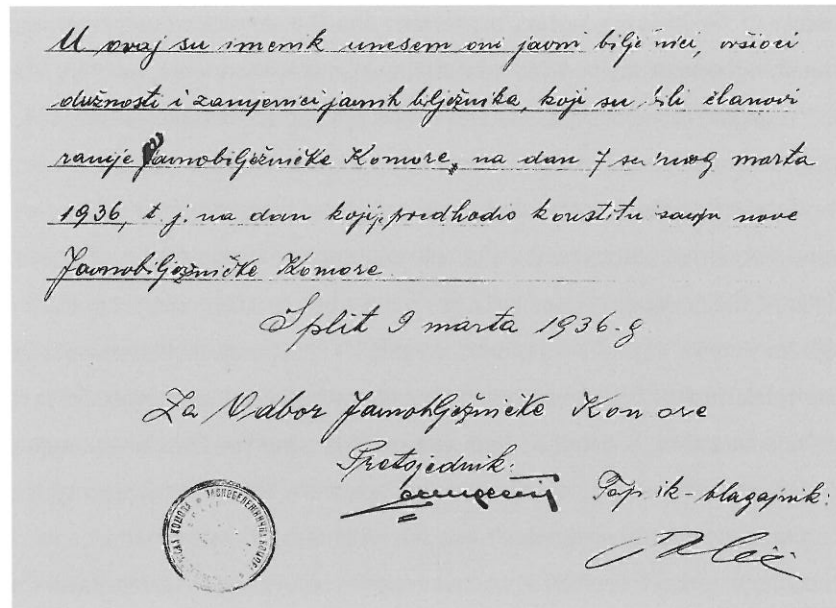 U ovaj su imenik unesem oni javni bilježnici, vršioci
dužnosti i zamjenici javnih bilježnika, koji su bili članovi
ranije Javnobilježničke Komore, na dan 7 marta
1936, t. j. na dan koji je predhodio konstituisanju nove
Javnobilježničke Komore
Split 9 marta 1936.g
Za Odbor Javnobilježničke Komore
Pretsjednik:
blagajnik: